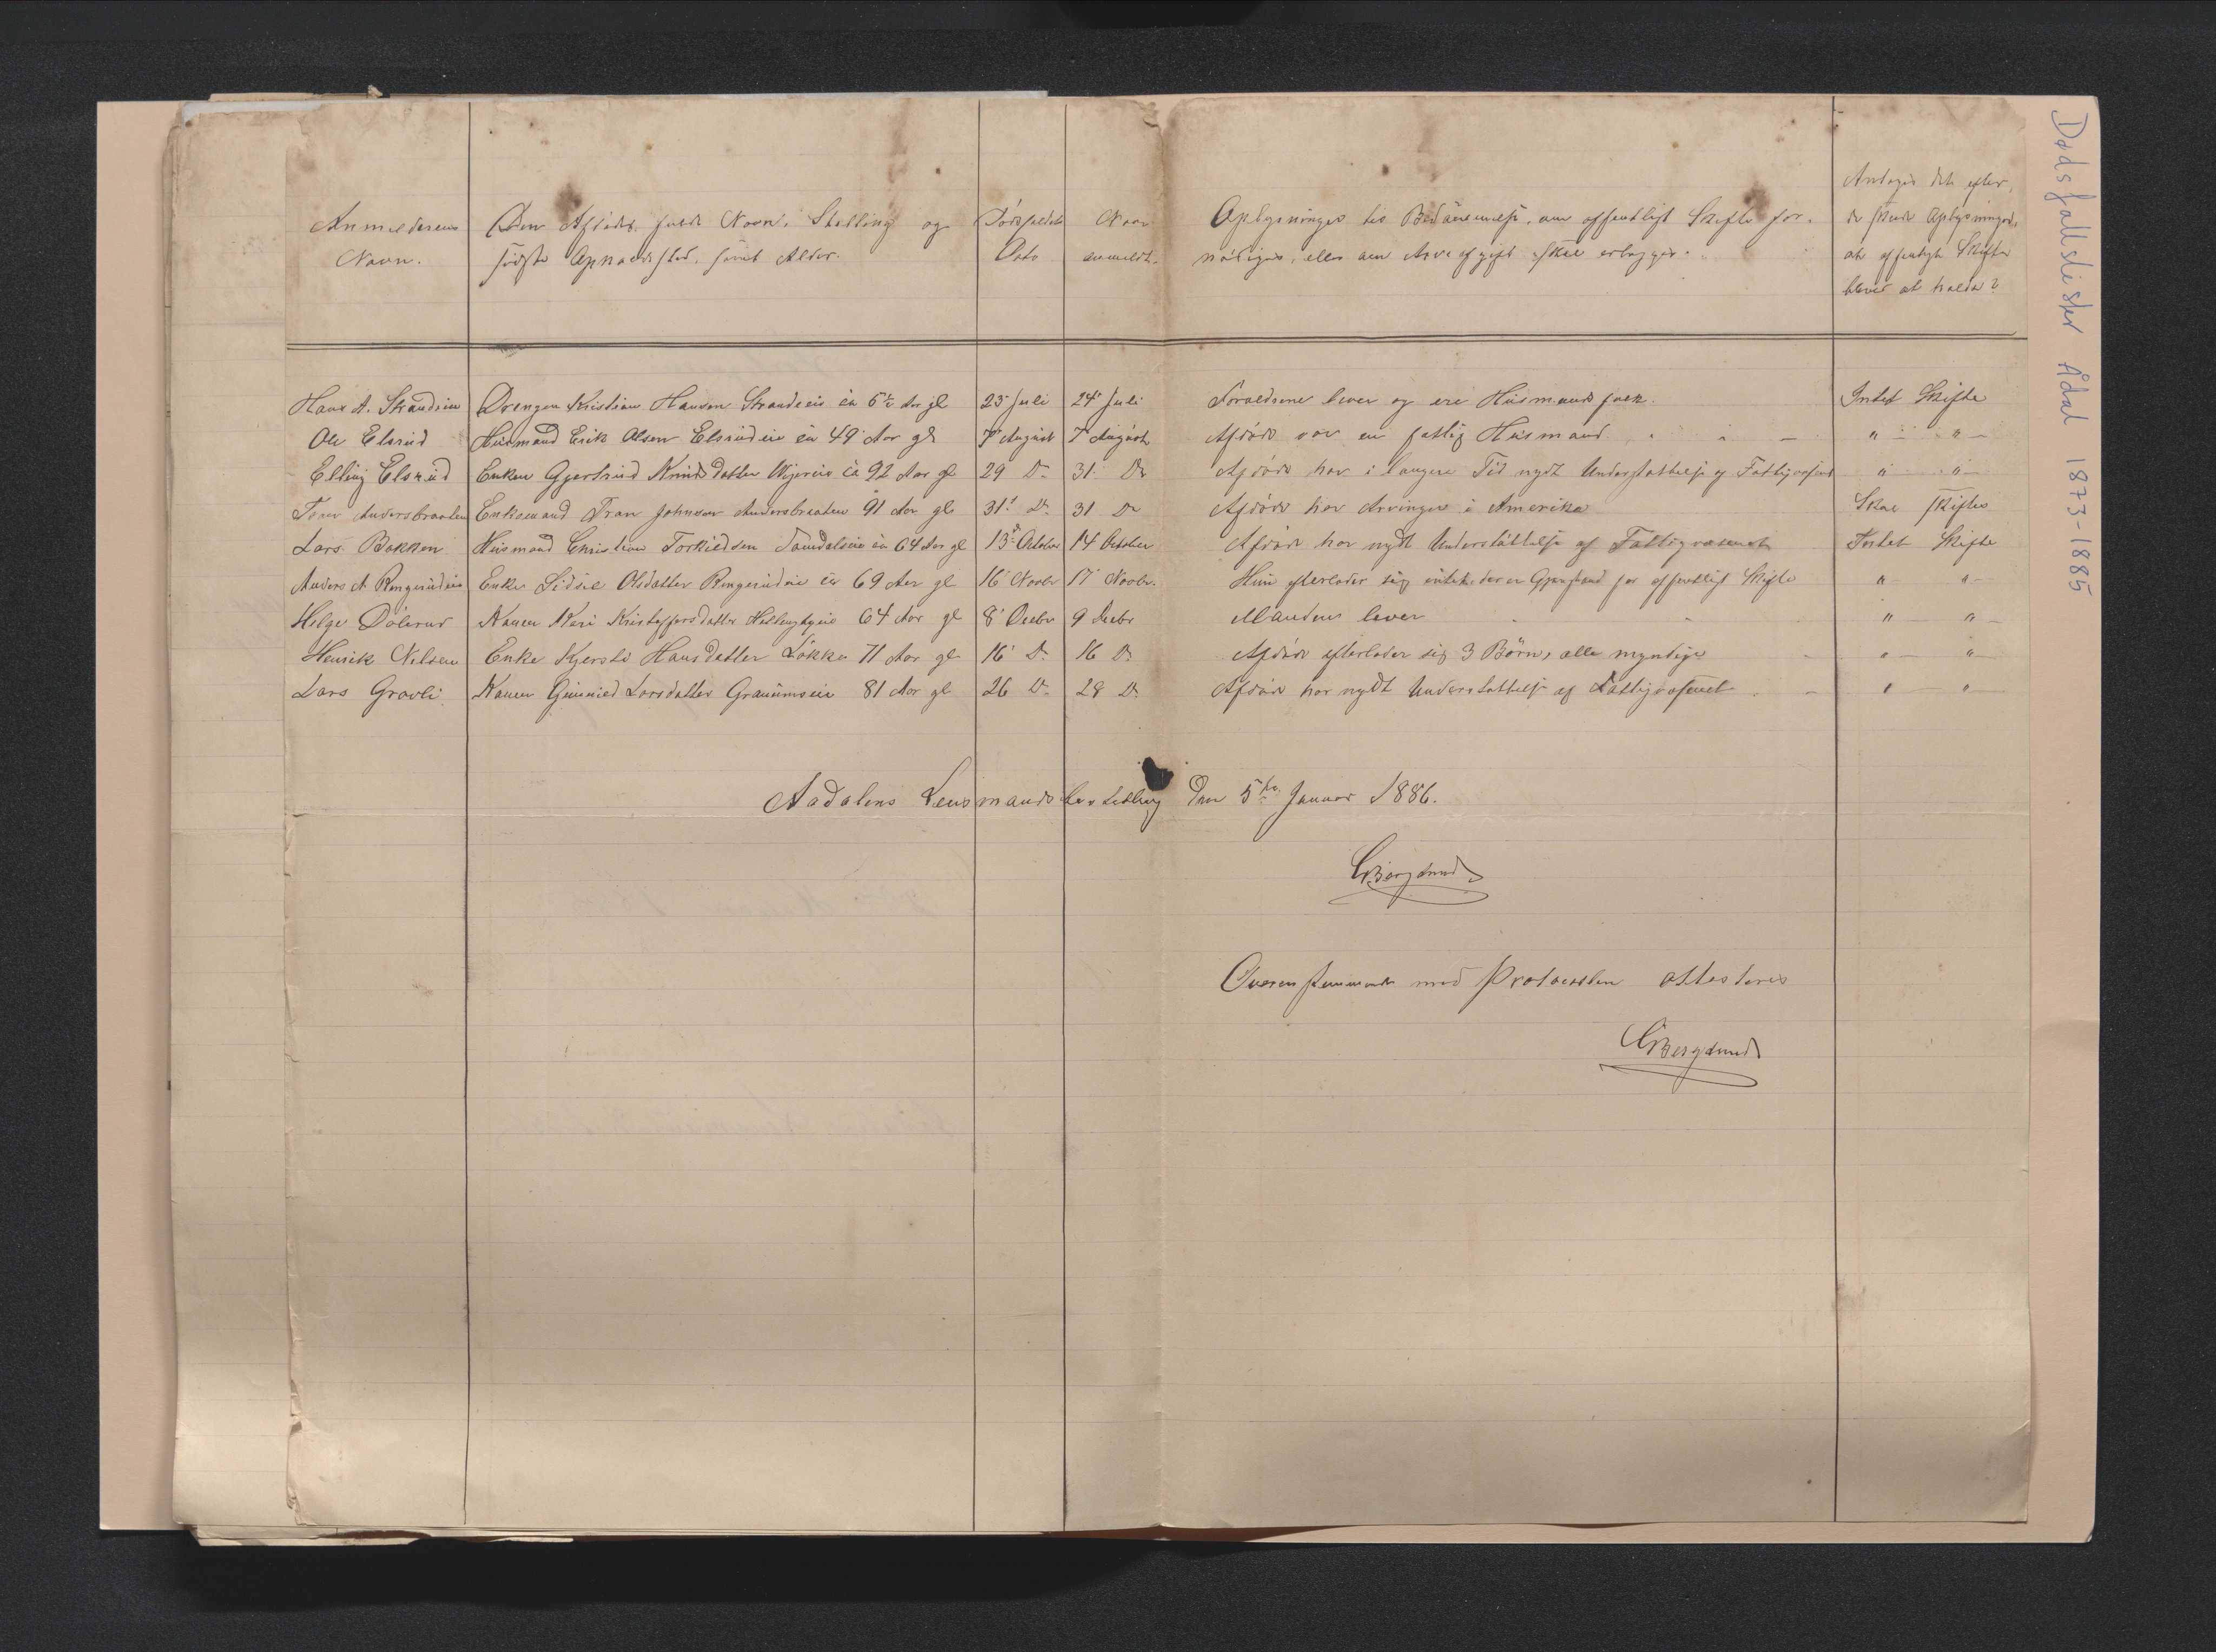 Anmelderens Navn.
Den Afdødes fulde Navn, Stilling og sidste Opholdssted, samt Alder.
Dødsfaldets Dato
Naar anmeldt.
Oplysninger til Bedømmelse, om offentligt Skifte fornødiges, eller om Arveafgift skal erlægges.
Antages det efter de skeede Oplysninger, at offentligt Skifte bliver at holde?
Hans A. Strandeie Drengen Kristian Hansen Strandeeie ca 6½ Aar gl 23' Juli 24' Juli Forældrene lever og ere Husmandsfolk. Intet Skifte
Ole Elsrud Husmand Erik Olsen Elsrudeie ca 49 Aar gl 7' August 7' August Afdøde var en fattig Husmand " "
Elling Elsrud Enken Gjertrud Knudsdatter ca 92 Aar gl 29 Do 31 Do Afdøde har i længere Tid nydt Understøttelse af Fattigvæsenet " "
Andersbraaten Enkemand Johnsen Andersbraaten 91 Aar gl 31' Do 31 Do Afdøde har Arvinger i Amerika Skal skiftes
Lars Bakken Husmand Christian Torkildsen ca 64 Aar gl 13' October 14 October Afdøde har nydt Understøttelse af Fattigvæsenet Intet Skifte
Anders A Ringerudeie Enke Sidsel Olsdatter Ringerudeie ca 69 Aar gl 16' Novbr 17' Novbr. Hun efterlader sig intet, der er Gjenstand for offentligt Skifte " "
Helge Dölerud Konen Mari Kristoffersdatter 64 Aar gl 8' Decbr 9 Decbr Manden lever " "
Henrik Nilsen Enke Kjersti Hansdatter Løkke 71 Aar gl 16' Do 16 Do Afdøde efterlader sig 3 Börn, alle myndige " "
Lars Gravli Konen Gunnild Larsdatter Granumseie 81 Aar gl 26 Do 28 Do Afdøde har nydt Understøttelse af Fattigvæsenet " "
Aadalens Lensmandsbestilling Den 5te Januar 1886.
C Bergsund
Overensstemmende med Protocollen attesteres
C Bergsund
Dødsfallslister Ådal 1873-1885